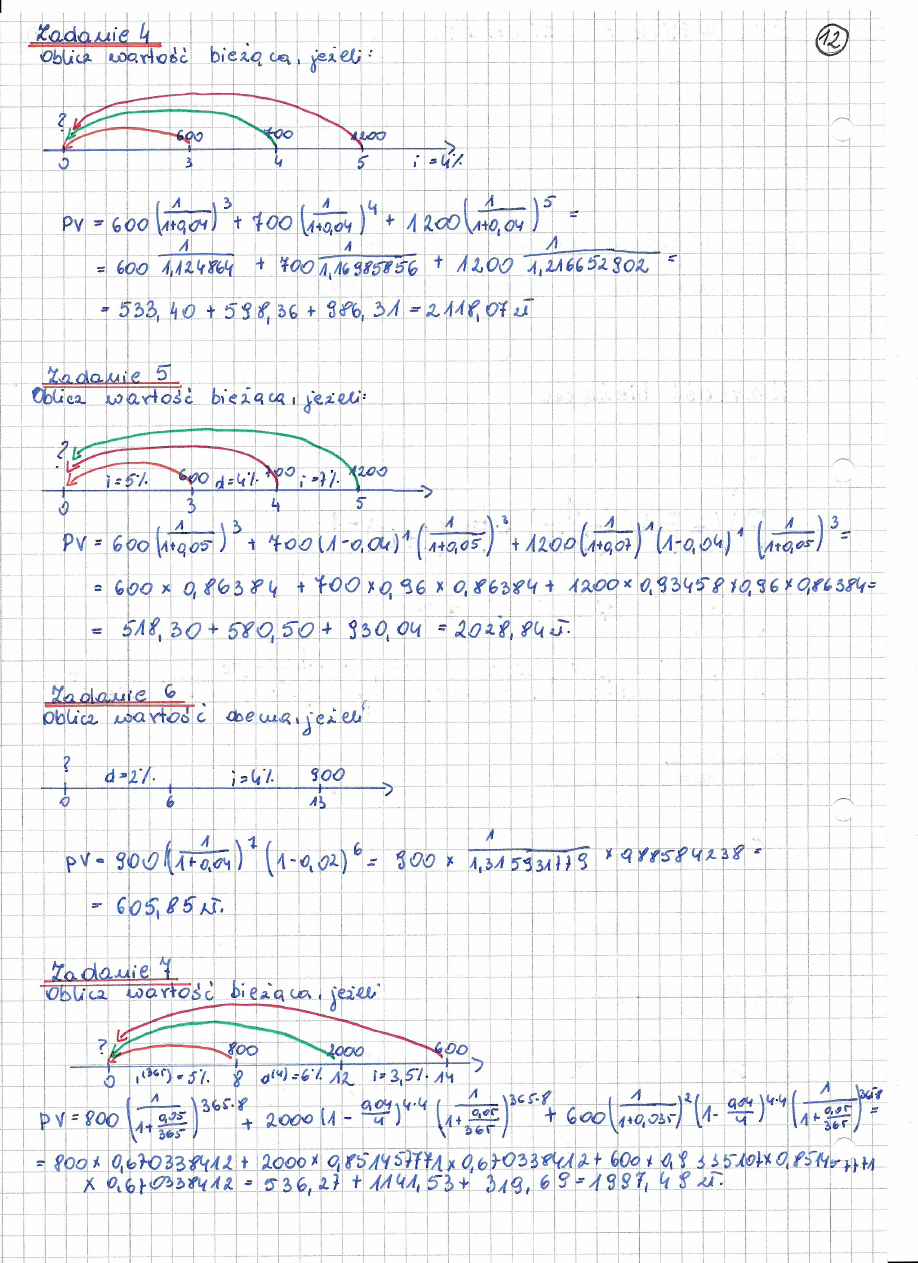 12
Zadanie 4
Oblicz wartość bieżąca, jeżeli:
? 600 700 1200
0 3 4 5 i=4%
PV = 600 (1/(1+0,04))^3 + 700 (1/(1+0,04))^4 + 1200 (1/(1+0,04))^5 =
= 600 1/1,124864 + 700 1/1,16985856 + 1200 1/1,216652902 =
= 533,40 + 598,36 + 986,31 = 2118,07 zł
Zadanie 5
Oblicz wartość bieżąca, jeżeli:
? i=5% 600 d=4% 700 i=7% 1200
0 3 4 5
PV = 600 (1/(1+0,05))^3 + 700 (1-0,04)^1 (1/(1+0,05))^3 + 1200 (1/(1+0,07))^1 (1-0,04)^1 (1/(1+0,05))^3 =
= 600 × 0,86384 + 700 × 0,96 × 0,86384 + 1200 × 0,93458 × 0,96 × 0,86384 =
= 518,30 + 580,50 + 930,04 = 2028,84 zł.
Zadanie 6
Oblicz wartość obecną, jeżeli
? d=2% i=4% 900
0 6 13
PV = 900 (1/(1+0,04))^7 (1-0,02)^6 = 900 × 1/1,315931779 × 988584238 =
= 605,85 zł.
Zadanie 7
Oblicz wartość bieżąca, jeżeli
? 800 2000 600
0 i^(365)=5% 8 d^(4)=6% 12 i=3,5% 14
PV = 800 (1/(1+0,05/365))^365·8 + 2000 (1 - 0,04/4)^4·4 (1/(1+0,05/365))^365·8 + 600 (1/(1+0,035))^2 (1 - 0,04/4)^4·4 (1/(1+0,05/365))^365·8 =
= 800 × 0,670338412 + 2000 × 0,851457771 × 0,670338412 + 600 × 0,9335107 × 0,851457771
× 0,670338412 = 536,27 + 1141,53 + 319,69 = 1997,49 zł.